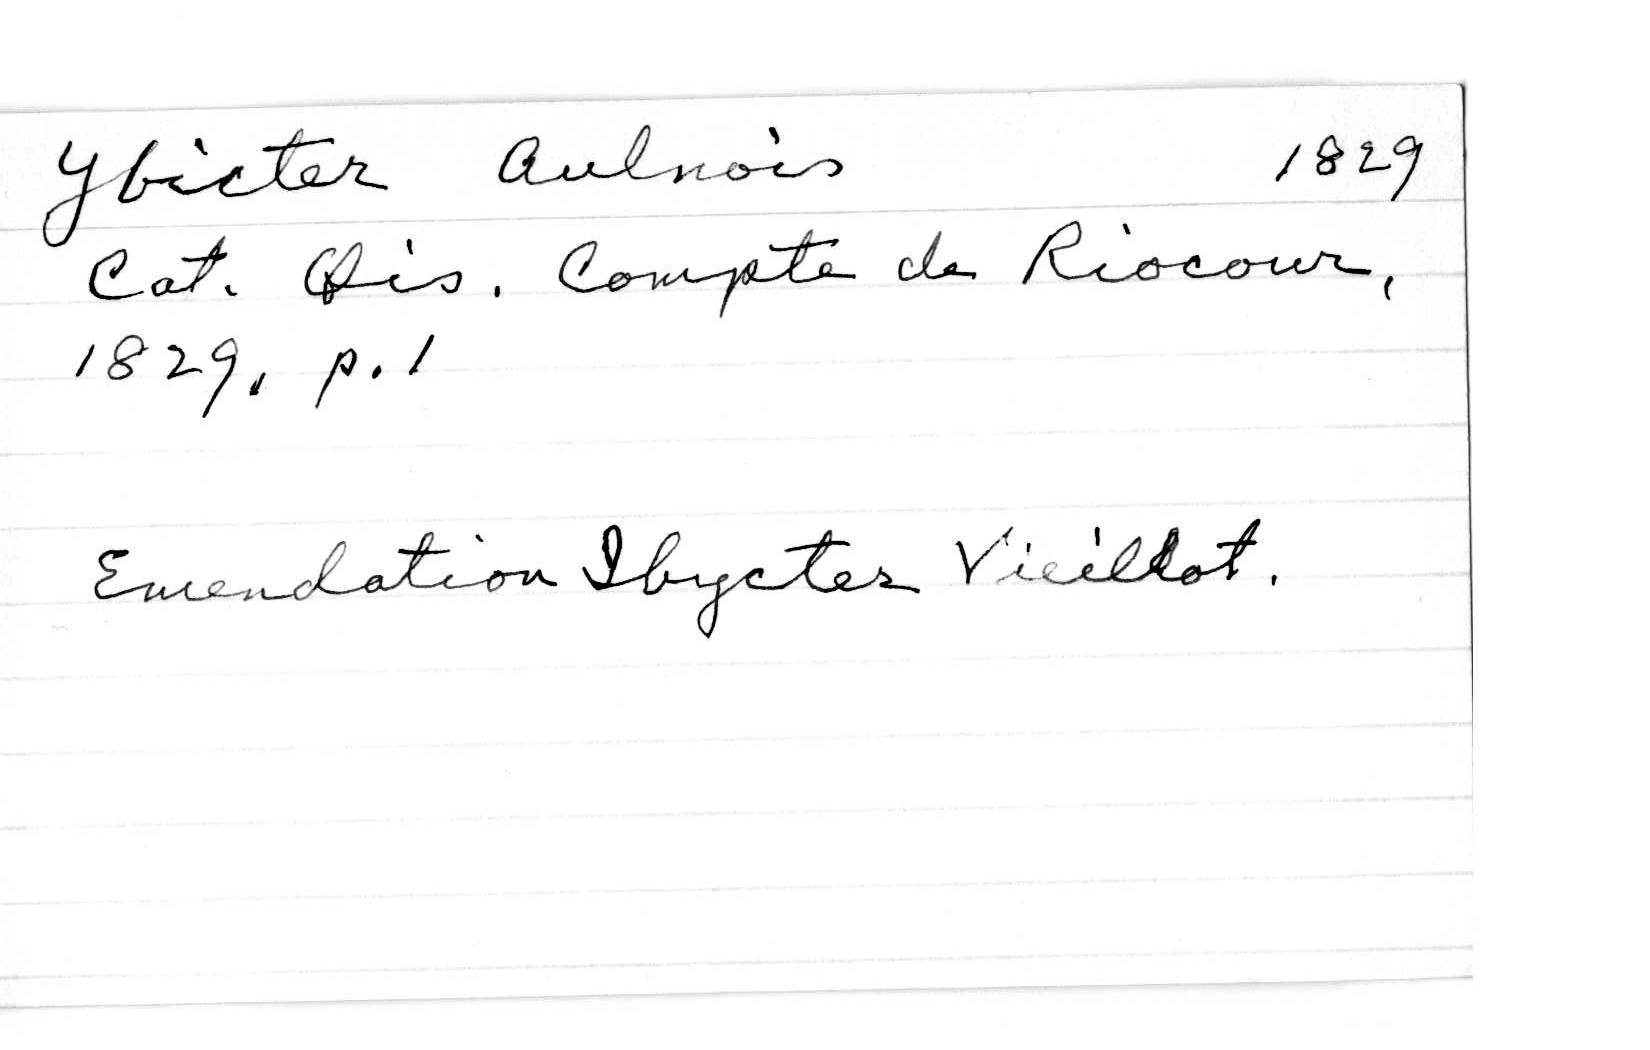 Ybicter Aulnois 1829
Cat. Ois. Compte de Riocour,
1829, p. 1
Emendation Ibycter Vieillot.